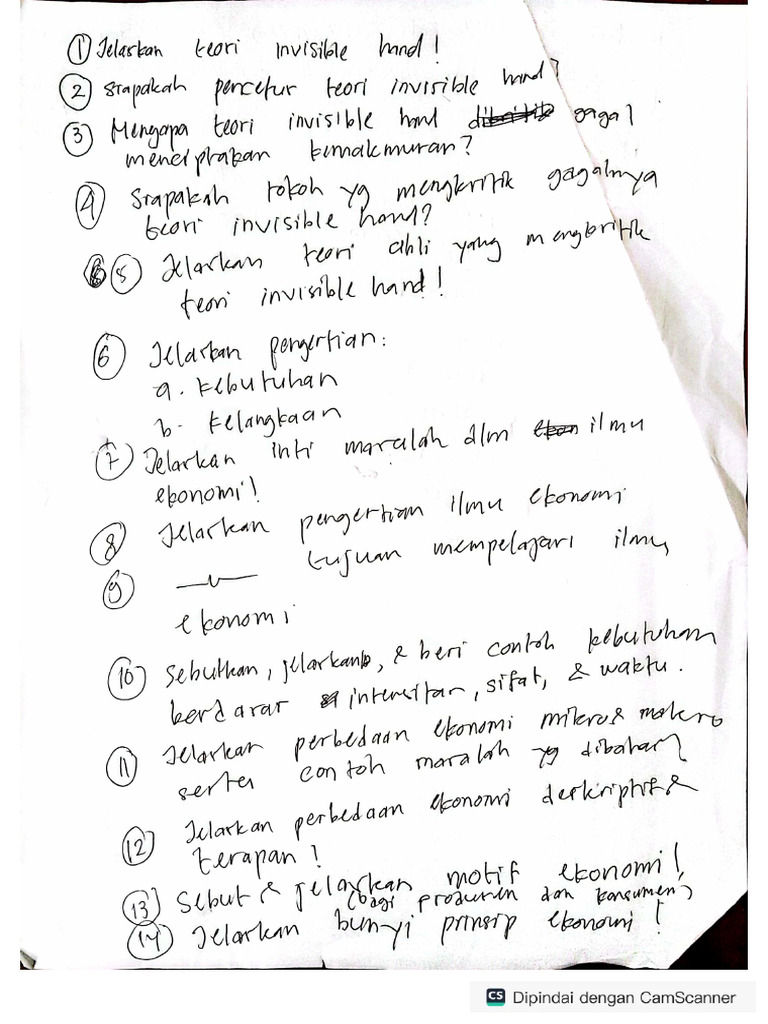 ① Jelaskan teori invisible hand!
② Siapakah pencetus teori invisible hand?
③ Mengapa teori invisible hand gagal
menciptakan kemakmuran?
④ Siapakah tokoh yg mengkritik gagalnya
teori invisible hand?
⑤ Jelaskan teori ahli yang mengkritik
teori invisible hand!
⑥ Jelaskan pengertian:
a. kebutuhan
b. kelangkaan
⑦ Jelaskan inti masalah dlm ilmu
ekonomi!
⑧ Jelaskan pengertian ilmu ekonomi
⑨ —〃— tujuan mempelajari ilmu
ekonomi
⑩ Sebutkan, jelaskan, & beri contoh kebutuhan
berdasar intensitas, sifat, & waktu.
⑪ Jelaskan perbedaan ekonomi mikro & makro
serta contoh masalah yg dibahas
⑫ Jelaskan perbedaan ekonomi deskriptif &
terapan!
⑬ Sebut & jelaskan motif ekonomi!
(bagi produsen dan konsumen)
⑭ Jelaskan bunyi prinsip ekonomi!
CS Dipindai dengan CamScanner